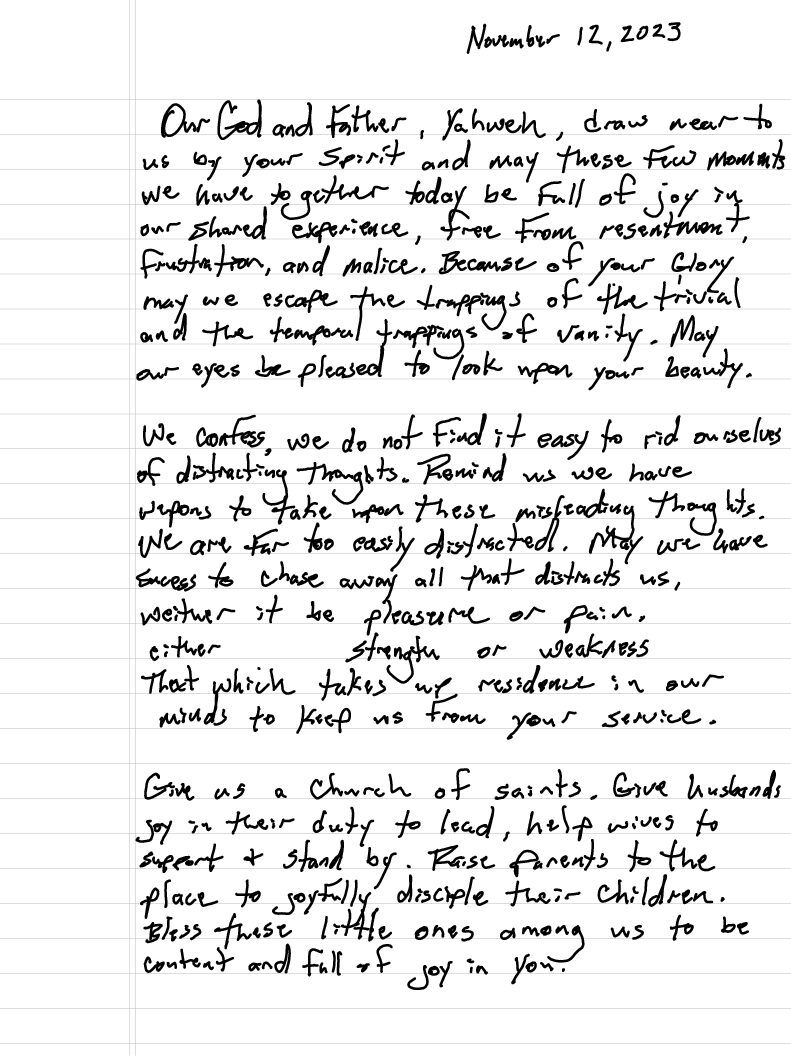 November 12, 2023
Our God and Father, Yahweh, draw near to
us by your Spirit and may these few moments
we have together today be full of joy in
our shared experience, free from resentment,
frustration, and malice. Because of your Glory
may we escape the trappings of the trivial
and the temporal trappings of vanity. May
our eyes be pleased to look upon your beauty.
We confess, we do not find it easy to rid ourselves
of distracting thoughts. Remind us we have
wepons to take upon these misleading thoughts.
We are far too easily distracted. May we have
to chase away all that distracts us,
weither it be pleasure or pain.
either strength or weakness
That which takes up residence in our
minds to keep us from your service.
Give us a Church of saints. Give husbands
joy in their duty to lead, help wives to
support + stand by. Raise parents to the
place to joyfully disciple their children.
Bless these little ones among us to be
content and full of joy in you.